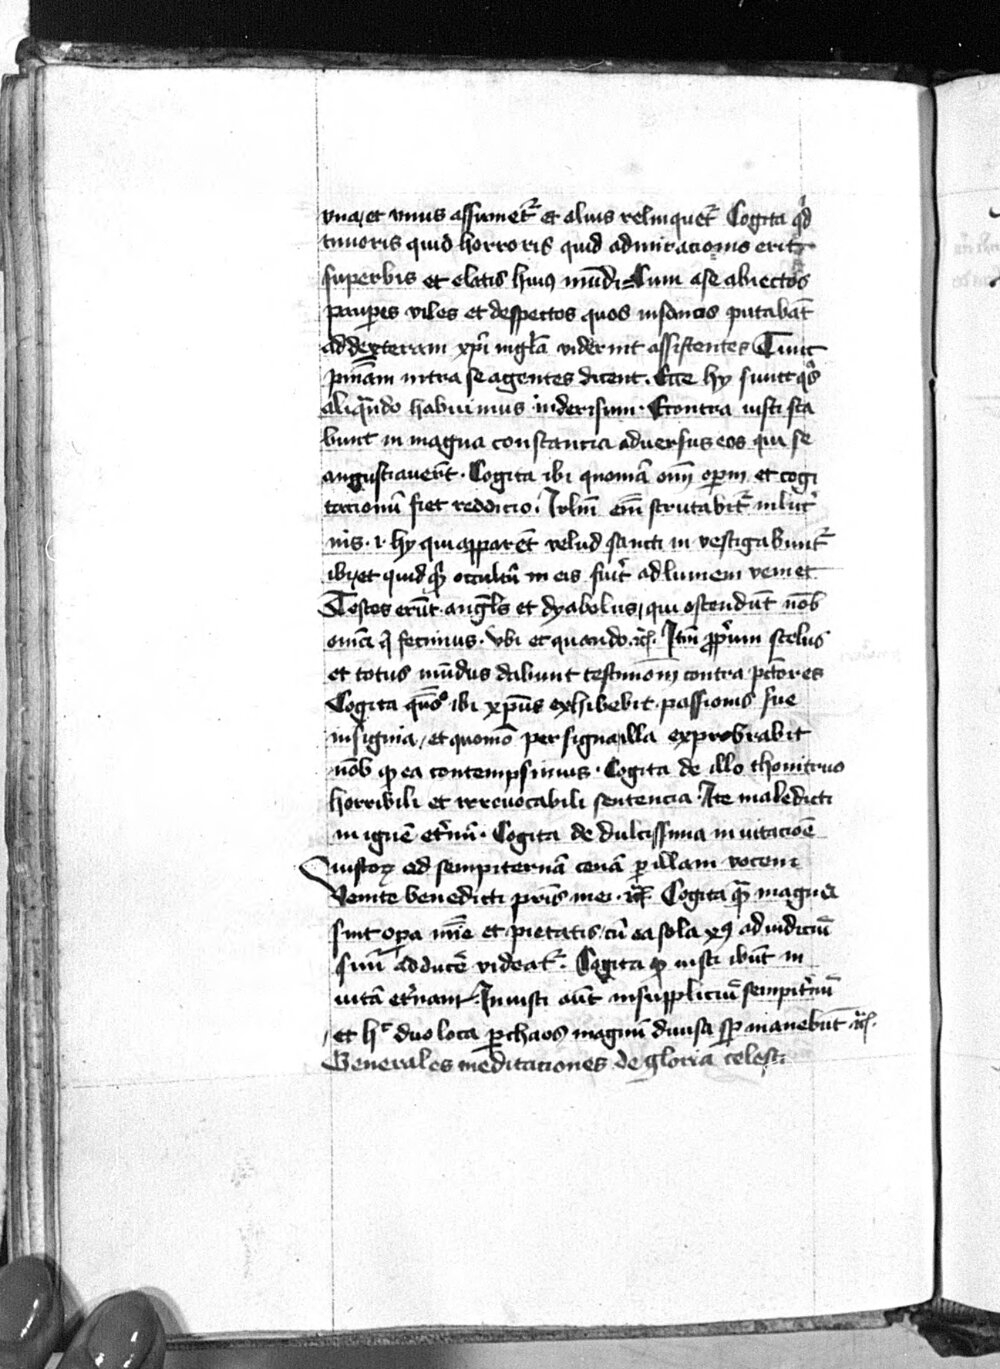 vna, et vnus assumet᷑ et alius relinquet᷑ Cogita qͥd
timoris quid horroris quid admiracionis erit
superbis et elatis huiꝰ mūdi Cum a se abiectos
paupes viles et despectos quos insanos putabāt
ad dexteram xpi in gl̄a viderint assistentes Tunc
pn̄iam intra se agentes dicent. Ecce hy sunt qͦs
aliqn̄do habuimus in derisum. Econtra iusti sta
bunt in magna constancia aduersus eos qui se
angustiauer̄t. Cogita ibi quoniā om̄ opm et cogi
tacionū fiet reddicio. Irlm̄ em̄ scrutabit᷑ in luc͛
nis .i. hy qui apparēt velud sancti inuestigabunt᷑
ibi, et quidqͥd occultū in eis fuit͛ ad lumen veniet
Testes erūt angl̄s et dyabolus, qui ostendūt nob̄
om̄ia q̄ fecimus. vbi et quando. ⁊c̄. Itm̄ ꝓpͥum scelus
et totus mūdus dabunt testimōm contra pc̄tores
Cogita qūo ibi xpūs exhibebit passionis sue
insignia, et quomō per signa illa exprobrabit
nob̄ qꝫ ea contempsimus. Cogita de illo thonitruo
horribili et irreuocabili sentencia. Ite maledicti
in ignē et͛nū. Cogita de dulcissima inuitacioē
iustoꝝ ad sempiternā cenā ꝑ illam vocem
Venite benedicti pr̄is mei. ⁊c̄. Cogita qͣm magna
sint opa mīe et pietatis, cū ea sola xꝰ ad iudiciū
suū adduc͛e videat᷑. Cogita qꝫ iusti ibūt in
vitā et͛nam. Iniusti aūt in suppliciū sempit͛nū
, et hͨ duo loca ꝑ chaos magnū diuisa sꝑ manebūt ⁊c̄.
Generales meditaciones de gloria celesti